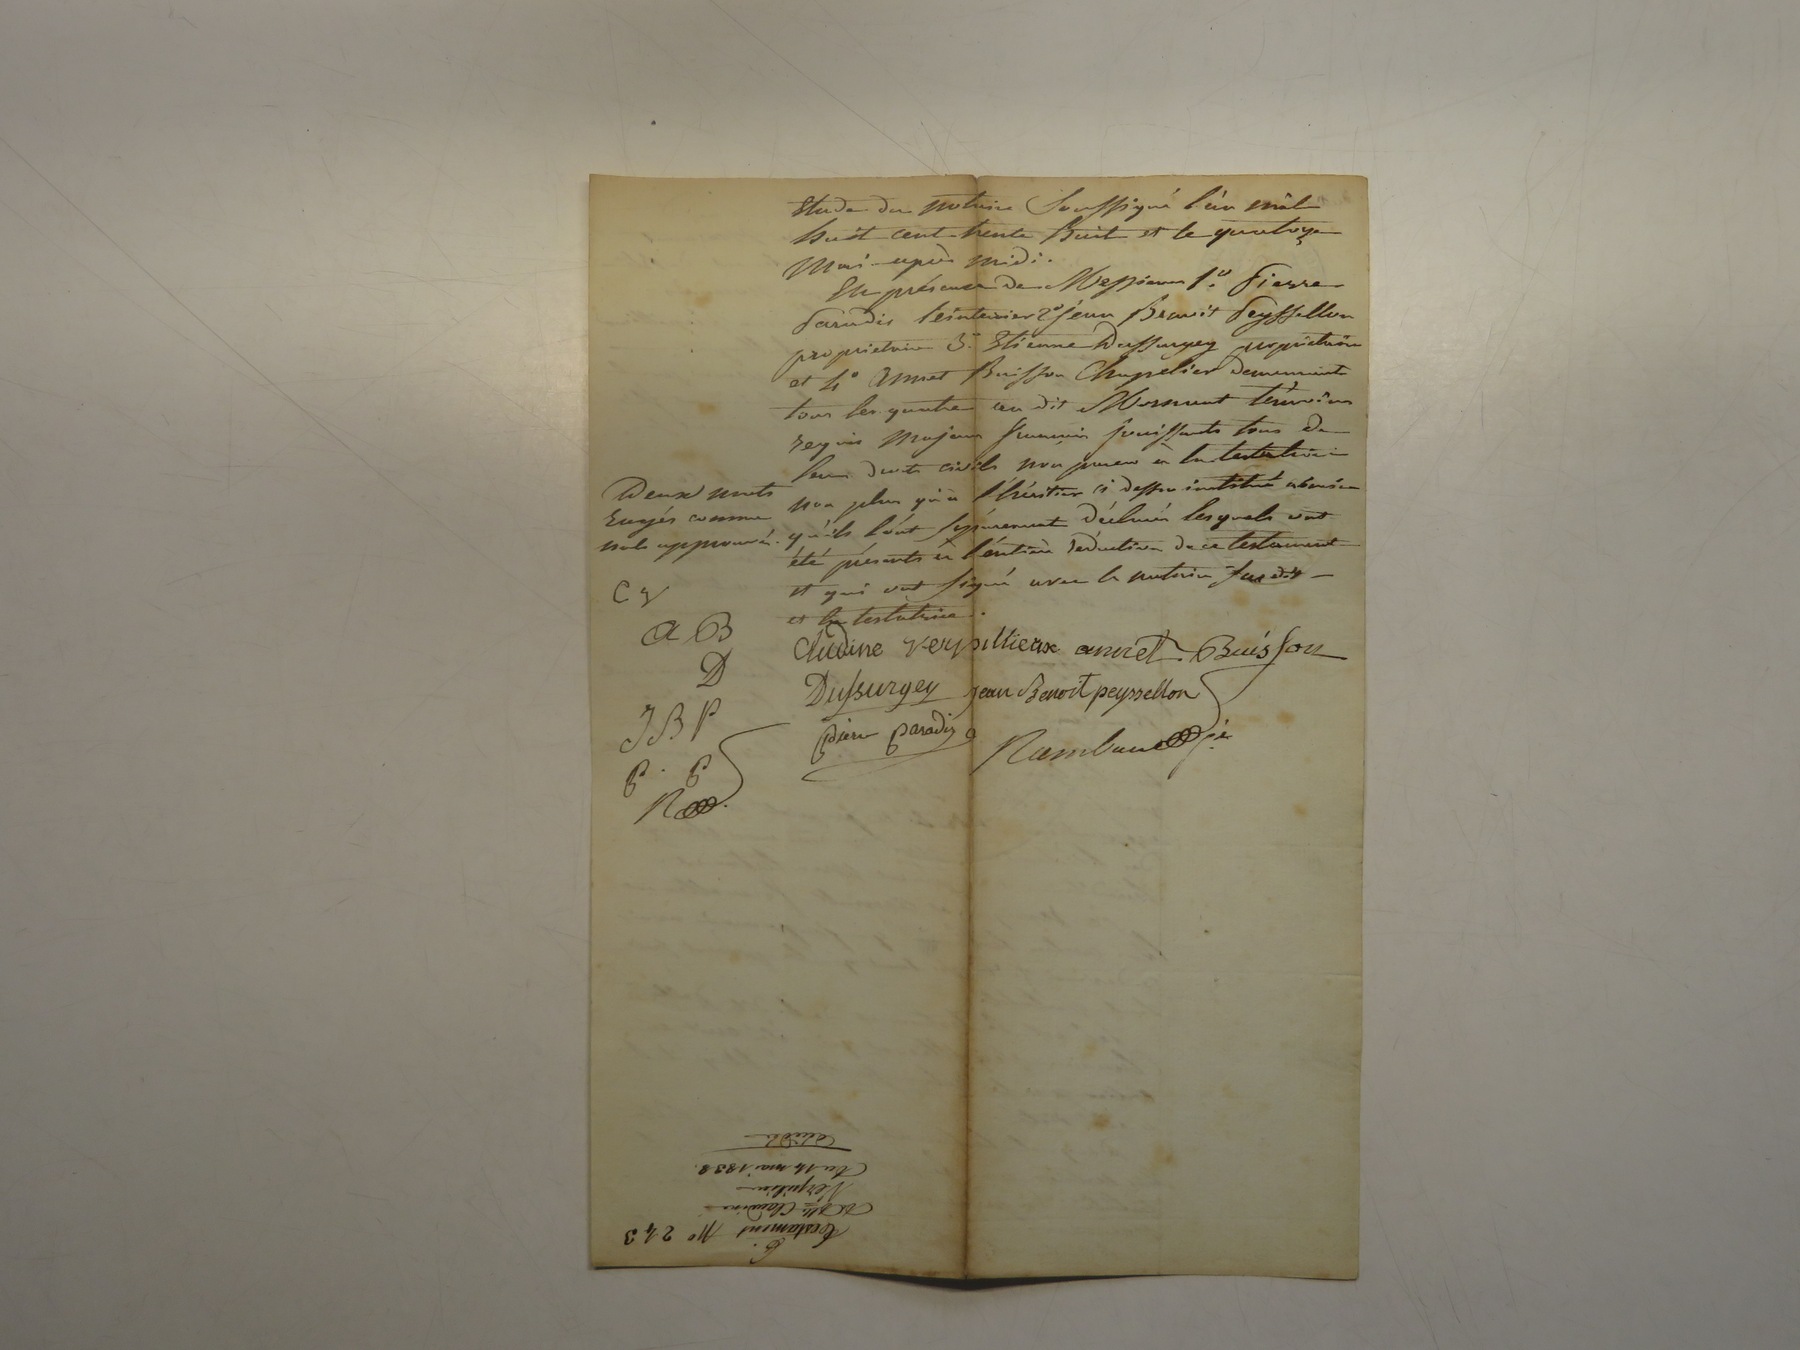 Etude du notaire soussigné l'an mil
huit cent trente huit et le quatorze
Mai après midi.
En présence de Messieurs 1.° Pierre
Paradis teinturier 2° jean Benoit Peyssellon
propriétaire 3.° Etienne Dussurgey propriétaire
et 4.° Annet Buisson Chapelier demeurant
tous les quatre au dit Mornant témoins
requis majeurs français jouissants tous de
leurs droits civils non parens à la testatrice
non plus qu'à l'héritier ci dessus institué
qu'ils l'ont séparement déclaré lesquels ont
été présents à l'entière rédaction de ce testament
et qui ont signé avec le notaire susdit
et la testatrice.
Deux mots
rayés comme
nuls approuvés.
C V
A B
D
J B P
P. P
R
Cludine verpillieux annet Buisson
Dussurgey jean Benoit peyssellon
pierre paradis
Rambaud
6.
testament N° 243
de Mlle Claudine
Verpilieux
du 14 mai 1838.